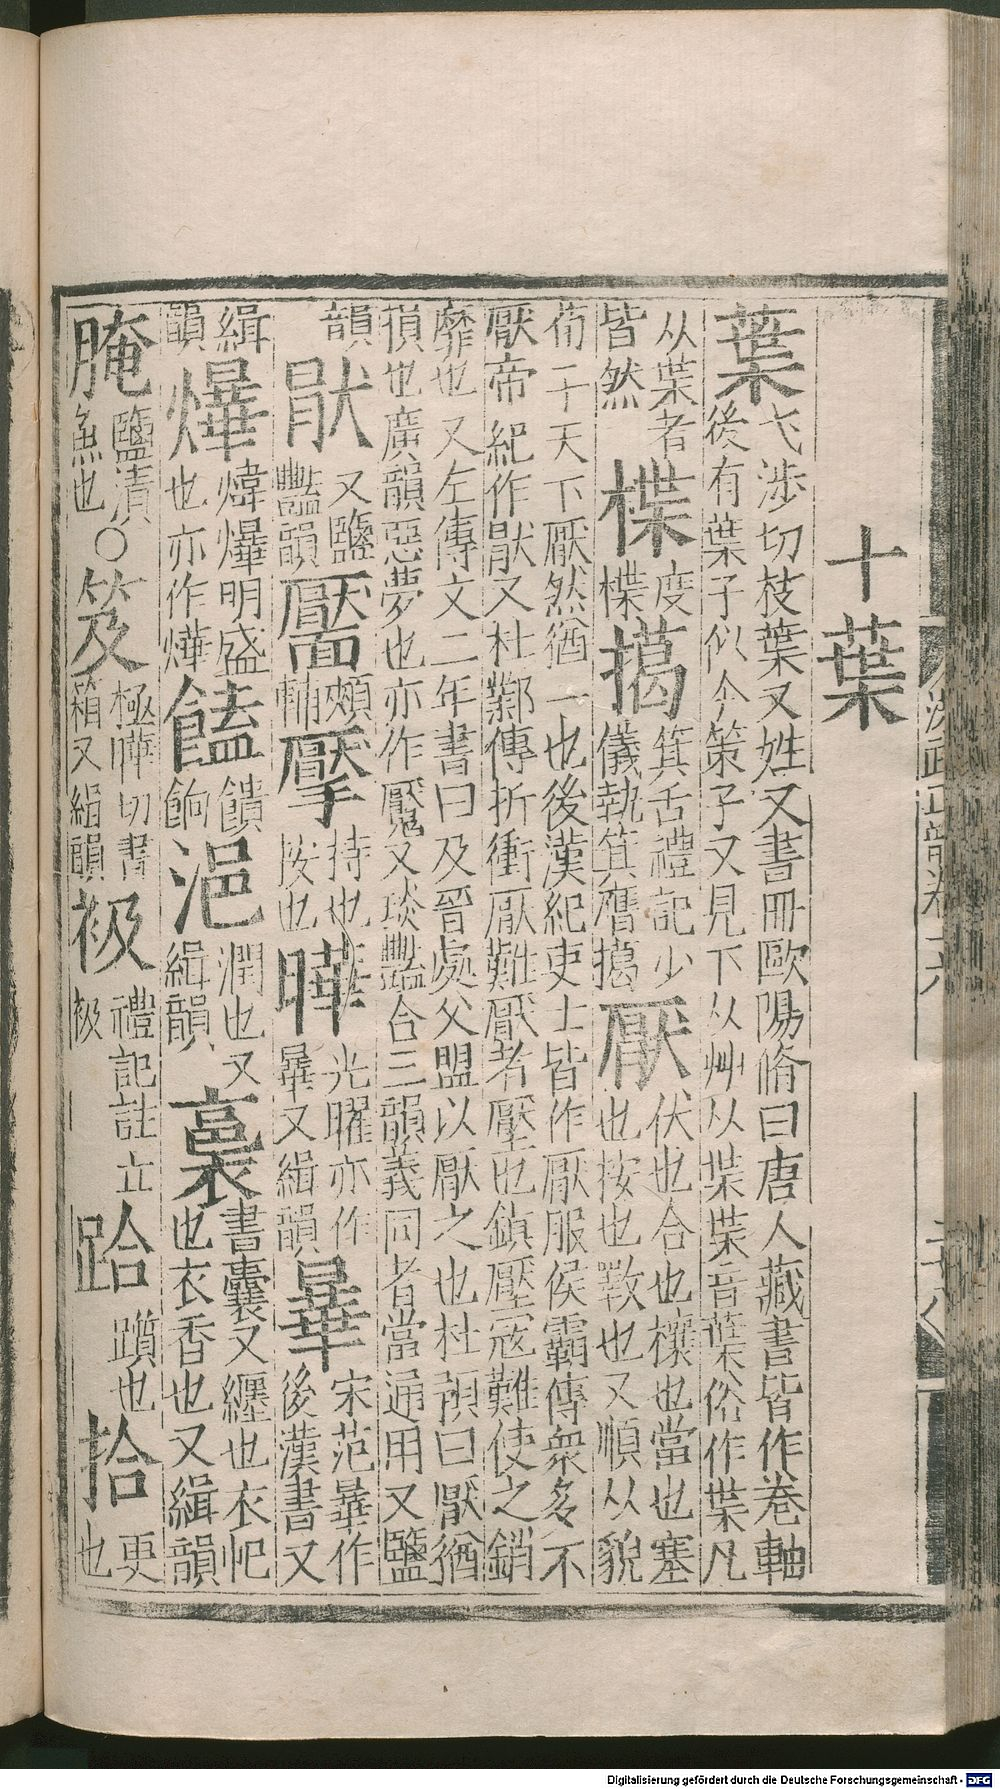 十葉
葉 弋涉切枝葉又姓又書冊歐陽脩曰唐人藏書皆作卷軸
後有葉子似今策子又見下从艸从枼枼音葉俗作葉凡
从葉者皆然 楪 度楪 擖 箕舌禮記少儀執箕膺擖 厭 伏也合也禳也當也塞也按也斁也又順从貌
荀子天下厭然猶一也後漢紀吏士皆作厭服侯霸傳衆多不
厭帝紀作猒又杜鄴傳折衝厭難厭者壓也鎮壓寇難使之銷
靡也又左傳文二年書曰及晉處父盟以厭之也杜預曰厭猶
損也廣韻惡夢也亦作魘又琰豔合三韻義同者當通用又鹽
韻 猒 又鹽豔韻 靨 頰輔 擪 持也按也 曄 光曜亦作曅又緝韻 曅 宋范曅作後漢書又
緝韻 爗 煒爗明盛也亦作燁 饁 饋餉 浥 潤也又緝韻 裛 書囊又纒也衣帊也衣香也又緝韻
腌 鹽漬魚也○ 笈 極曄切書箱又緝韻 衱 禮記註立衱 跲 躓也 拾 更也